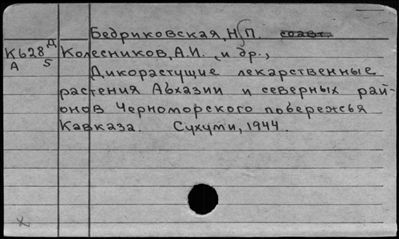 Бедриковская, Н.П. соавт.
К628 Д Колесников, А.И. и др.,
А 5 Дикорастущие лекарственные
растения Абхазии и северных рай-
онов Черноморского побережья
Кавказа. Сухуми, 1944.